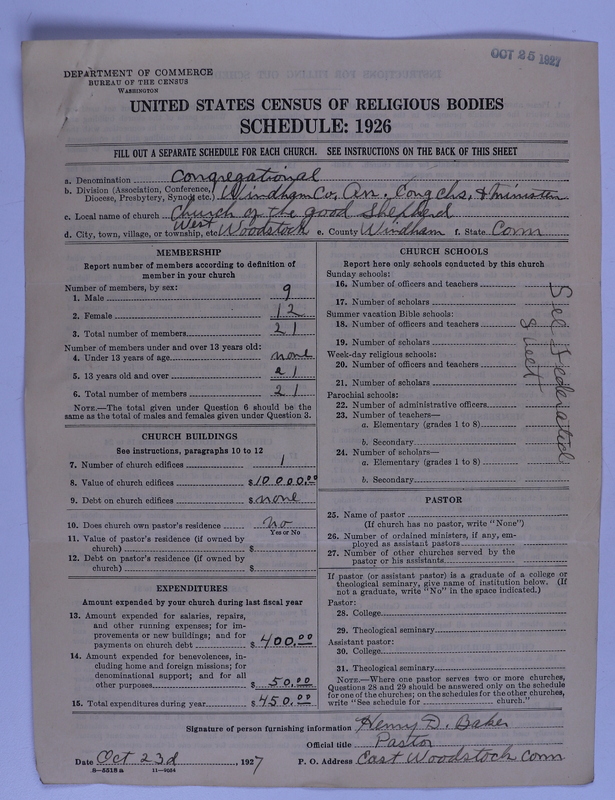 OCT 25 1927
DEPARTMENT OF COMMERCE
BUREAU OF THE CENSUS
WASHINGTON
UNITED STATES CENSUS OF RELIGIOUS BODIES
SCHEDULE: 1926
FILL OUT A SEPARATE SCHEDULE FOR EACH CHURCH. SEE INSTRUCTIONS ON THE BACK OF THIS SHEET
a. Denomination Congregational
b. Division (Association, Conference, Diocese, Presbytery, Synod, etc.) Windham Co. An. Cong chs. & ministers
c. Local name of church Church of the Good Shepherd
d. City, town, village, or township, etc. West Woodstock e. County Windham f. State Conn
MEMBERSHIP
Report number of members according to definition of
member in your church
Number of members, by sex:
1. Male 9
2. Female 12
3. Total number of members 21
Number of members under and over 13 years old:
4. Under 13 years of age none
5. 13 years old and over 21
6. Total number of members 21
NOTE.—The total given under Question 6 should be
same as the total of males and females given under Question 3.
CHURCH BUILDINGS
See instructions, paragraphs 10 to 12
7. Number of church edifices 1
8. Value of church edifices $10000.00
9. Debt on church edifices $none
10. Does church own pastor's residence no
Yes or No
11. Value of pastor's residence (if owned by
church) $
12. Debt on pastor's residence (if owned by
church) $
EXPENDITURES
Amount expended by your church during last fiscal year
13. Amount expended for salaries, repairs,
and other running expenses; for im-
provements or new buildings; and for
payments on church debt $400.00
14. Amount expended for benevolences, in-
cluding home and foreign missions; for
denominational support; and for all
other purposes $50.00
15. Total expenditures during year $450.00
CHURCH SCHOOLS
Report here only schools conducted by this church
Sunday schools:
16. Number of officers and teachers
17. Number of scholars
Summer vacation Bible schools:
18. Number of officers and teachers
19. Number of scholars
Week-day religious schools:
20. Number of officers and teachers
21. Number of scholars
Parochial schools:
22. Number of administrative officers
23. Number of teachers—
a. Elementary (grades 1 to 8)
b. Secondary
24. Number of scholars—
a. Elementary (grades 1 to 8)
b. Secondary
See Federated
Sheet
PASTOR
25. Name of pastor
(If church has no pastor, write "None")
26. Number of ordained ministers, if any, em-
ployed as assistant pastors
27. Number of other churches served by the
pastor or his assistants
If pastor (or assistant pastor) is a graduate of a college or
theological seminary, give name of institution below. (If
not a graduate, write "No" in the space indicated.)
Pastor:
28. College
29. Theological seminary
Assistant pastor:
30. College
31. Theological seminary
NOTE.—Where one pastor serves two or more churches,
Questions 28 and 29 should be answered only on the schedule
for one of the churches; on the schedules for the other churches,
write "See schedule for church."
Signature of person furnishing information Henry D. Baker
Official title Pastor
Date Oct 23d, 1927 P. O. Address East Woodstock Conn
8—5518a 11—9034